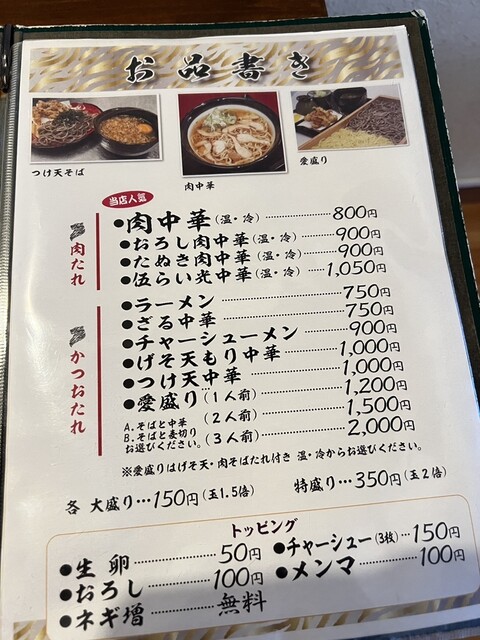 お品書き
つけ天そば
肉中華
愛盛り
当店人気
肉たれ
●肉中華(温・冷)……………800円
●おろし肉中華(温・冷)………900円
●たぬき肉中華(温・冷)………900円
●伍らい光中華(温・冷)……1,050円
かつおたれ
●ラーメン……………………750円
●ざる中華……………………750円
●チャーシューメン……………900円
●げそ天もり中華……………1,000円
●つけ天中華………………1,000円
●愛盛り(1人前)……………1,200円
A.そばと中華 (2人前)……………1,500円
B.そばと麦切り (3人前)……………2,000円
お選びください。
※愛盛りはげそ天・肉そばたれ付き 温・冷からお選びください。
各 大盛り…150円(玉1.5倍) 特盛り…350円(玉2倍)
トッピング
●生卵……………50円
●おろし…………100円
●ネギ増…………無料
●チャーシュー(3枚)…150円
●メンマ……………100円